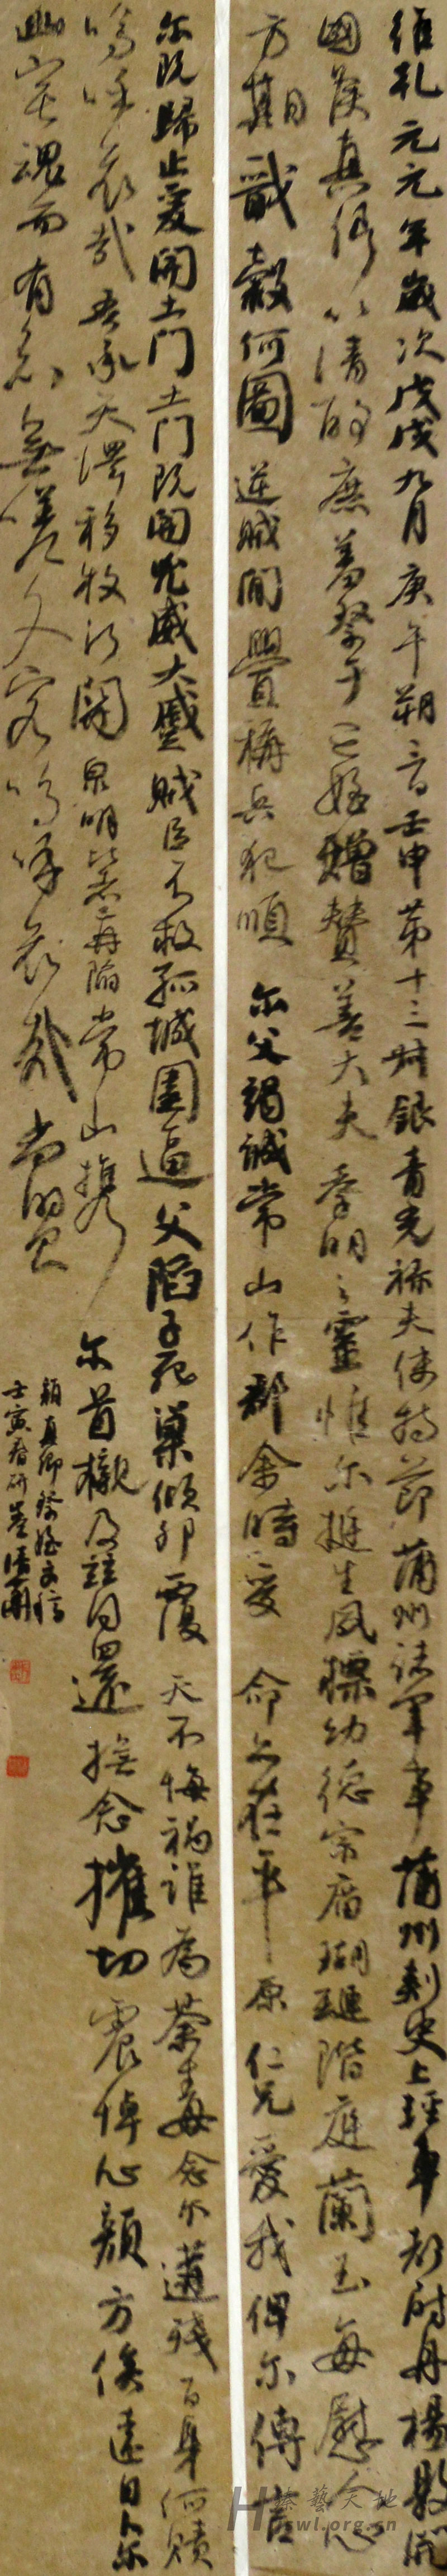 維乾元元年歲次戊戌九月庚午朔三日壬申第十三叔銀青光祿夫使持節蒲州諸軍事蒲州刺史上輕車都尉丹楊縣開
國侯真卿以清酌庶羞祭于亡姪贈贊善大夫季明之靈惟尔挺生夙標幼德宗廟瑚璉階庭蘭玉每慰人心
方期戩穀何圖逆賊間釁稱兵犯順尔父竭誠常山作郡余時受命亦在平原仁兄愛我俾尔傳言
尔既歸止爰開土門土門既開兇威大蹙賊臣不救孤城圍逼父陷子死巢傾卵覆天不悔禍誰為荼毒念尔遘殘百身何贖
嗚呼哀哉吾承天澤移牧河關泉明比者再陷常山攜尔首櫬及茲同還撫念摧切震悼心顏方俟遠日卜尔
幽宅魂而有知無嗟久客嗚呼哀哉尚饗
顏真卿祭姪文稿
壬寅春研
藝天地
swl.org.cn